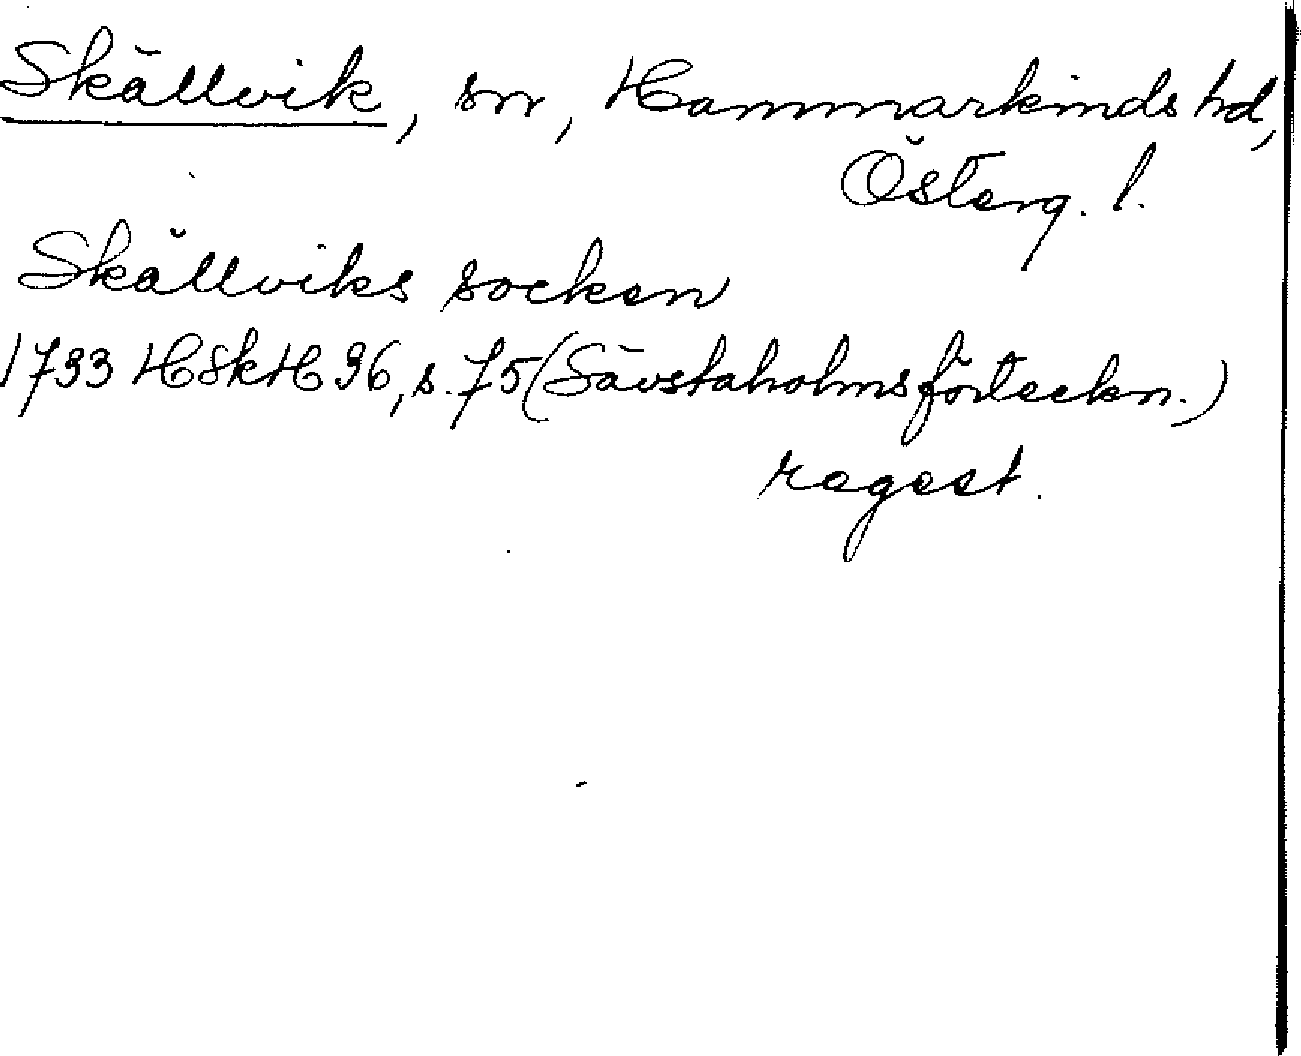 Skällvik, sn, Hammarkinds hd,
Österg. l.
Skällviks socken
1733 HSkH 36, s. 75 (Sävstaholmsförteckn.)
regest.